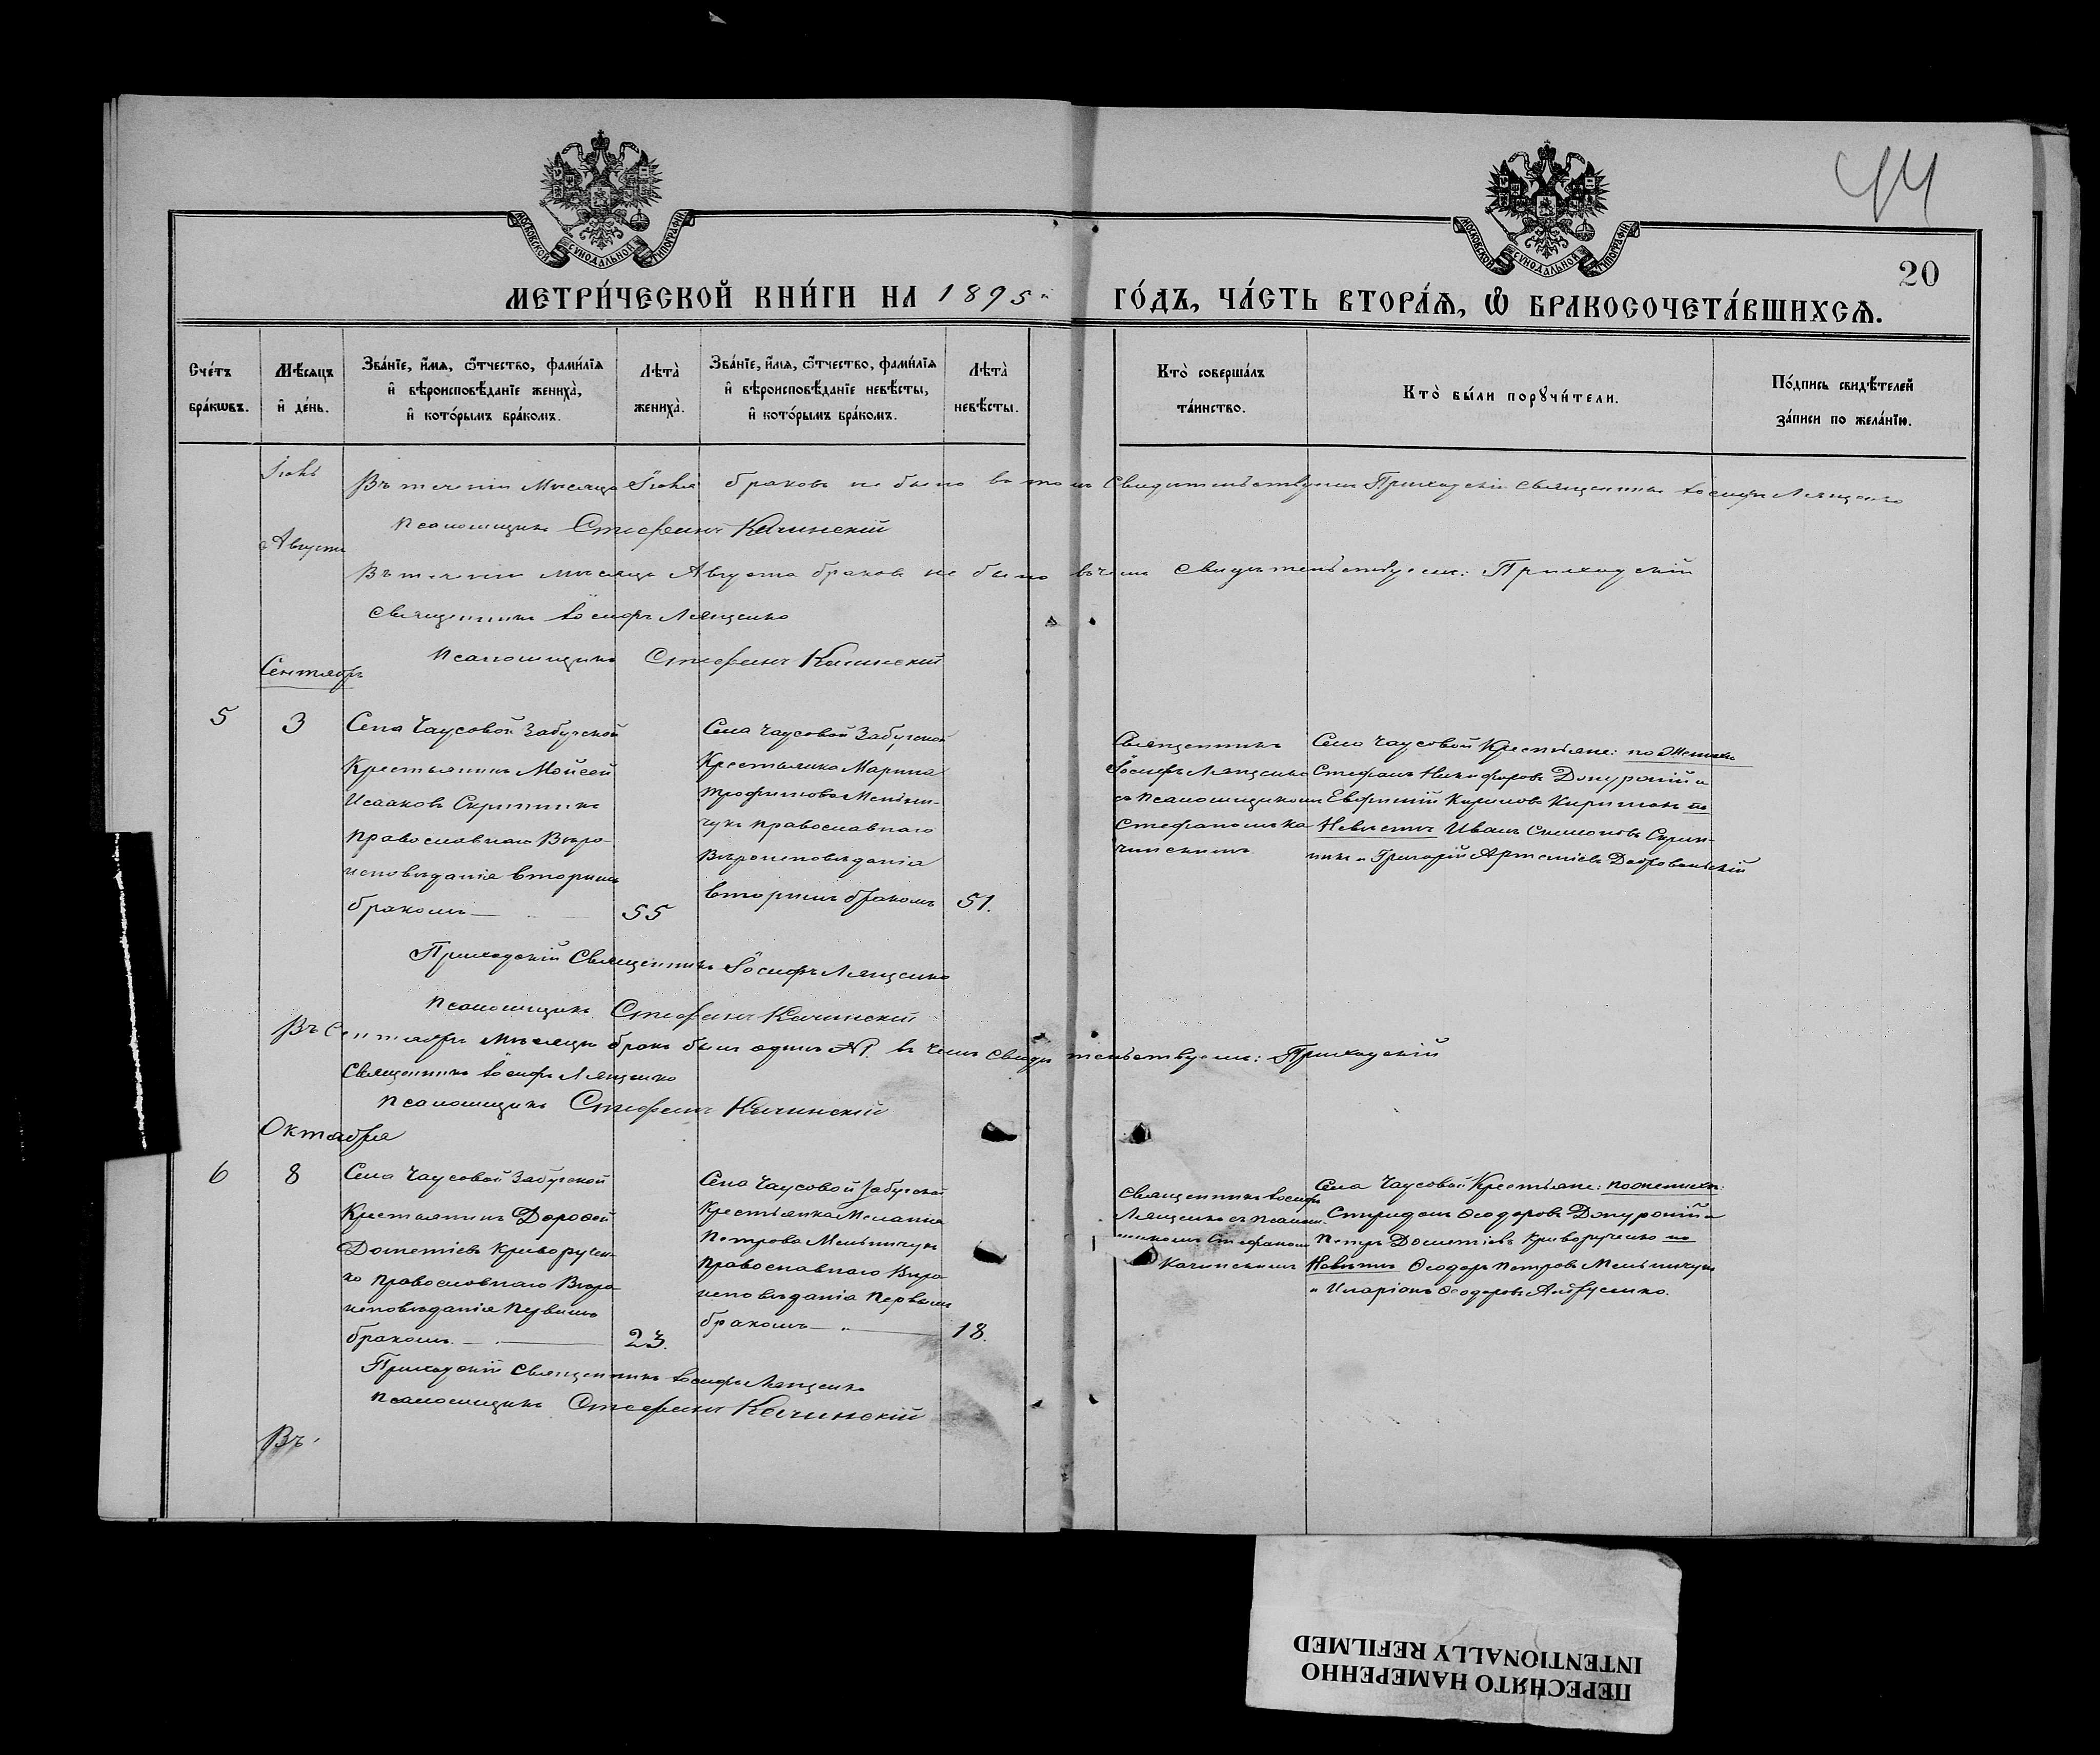 44
20
МОСКОВСКОЙ СѴНОДАЛЬНОЙ ТИПОГРАФІИ
МОСКОВСКОЙ СѴНОДАЛЬНОЙ ТИПОГРАФІИ
МЕТРИ́ЧЕСКОЙ КНИ́ГИ НА 1895 й ГО́ДЪ, ЧА́СТЬ ВТОРА́Я, Ѽ БРАКОСОЧЕТА́ВШИХСѦ.
Сче́тъ бра́кѡвъ.
Мѣ́сяцъ и҆ де́нь.
Зва́нїе, и҆́мя, ѻ҆́тчество, фами́лїя и҆ вѣроисповѣ́данїе жениха̀, и҆ кото́рымъ бра́комъ.
Лѣта̀ жениха̀.
Зва́нїе, и҆́мя, ѻ҆́тчество, фами́лїя и҆ вѣроисповѣ́данїе невѣ́сты, и҆ кото́рымъ бра́комъ.
Лѣта̀ невѣ́сты.
Кто̀ соверша́лъ та́инство.
Кто̀ бы́ли порꙋчи́тели.
По́дпись свидѣ́телей за́писи по жела́нїю.
Іюль
Въ теченіи Мѣсяца Іюля браковъ не было въ томъ Свидѣтельствуемъ Приходскій священникъ Іосифъ Лященко
Псаломщикъ Стефанъ Качинскій
Августъ
Въ теченіи мѣсяца Августа браковъ не было въ чемъ свидѣтельствуемъ: Приходскій
священникъ Іосифъ Лященко
Псаломщикъ Стефанъ Качинскій
Сентябрь
5
3
Села Чаусовой Забугской
Крестьянинъ Моисей
Исааковъ Скрипникъ
Православнаго Вѣро-
исповѣданія вторымъ
бракомъ
55
Села Чаусовой Забугской
Крестьянка Марина
Трофимова Мельни-
чукъ православнаго
Вѣроисповѣданія
вторымъ бракомъ
51.
Священникъ
Іосифъ Лященко
съ псаломщикомъ
Стефаномъ Ка
чинскимъ
Села Чаусовой Крестьяне: по Женихѣ
Стефанъ Никифоровъ Донурскій и
Евфимій Кириловъ Киримонъ по
Невѣстѣ Иванъ Симоновъ Скрип-
никъ и Григорій Артеміевъ Добровольскій
Приходскій Священникъ Іосифъ Лященко
Псаломщикъ Стефанъ Качинскій
Въ Сентябрѣ мѣсяцѣ бракъ былъ одинъ №1. въ чемъ свидѣтельствуемъ: Приходскій
Священникъ Іосифъ Лященко
Псаломщикъ Стефанъ Качинскій
Октября
6
8
Села Чаусовой Забугской
Крестьянинъ Дорофей
Дометіевъ Криворучен-
ко православнаго Вѣро
исповѣданія первымъ
бракомъ
23.
Села Чаусовой Забугской
Крестьянка Меланія
Петрова Мельничукъ
православнаго Вѣро
исповѣданія Первымъ
бракомъ
18.
Священникъ Іосифъ
Лященко съ псалом.
щикомъ Стефаномъ
Качинскимъ
Села Чаусовой Крестьяне: по женихѣ:
Спиридонъ Ѳеодоровъ Донурскій и
Петръ Дометіевъ Криворученко по
Невѣстѣ Ѳеодоръ Петровъ Мельничукъ
и Иларіонъ Ѳеодоровъ
Приходскій священникъ Іосифъ Лященко
Псаломщикъ Стефанъ Качинскій
Въ
ПЕРЕСНЯТО НАМЕРЕННО
INTENTIONALLY REFILMED